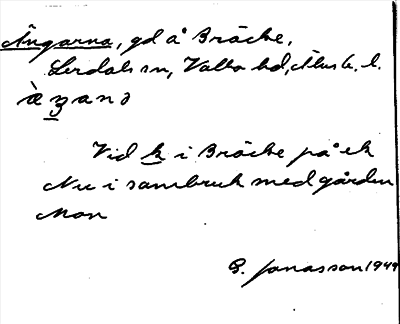 Ängarna, gd å Bräcke,
Lerdals sn, Valbo hd, Älvsb. l.
à ʒ a n ə
Vid k i Bräcke på ek
Nu i sambruk med gården
Mon
G. Jonasson 1949